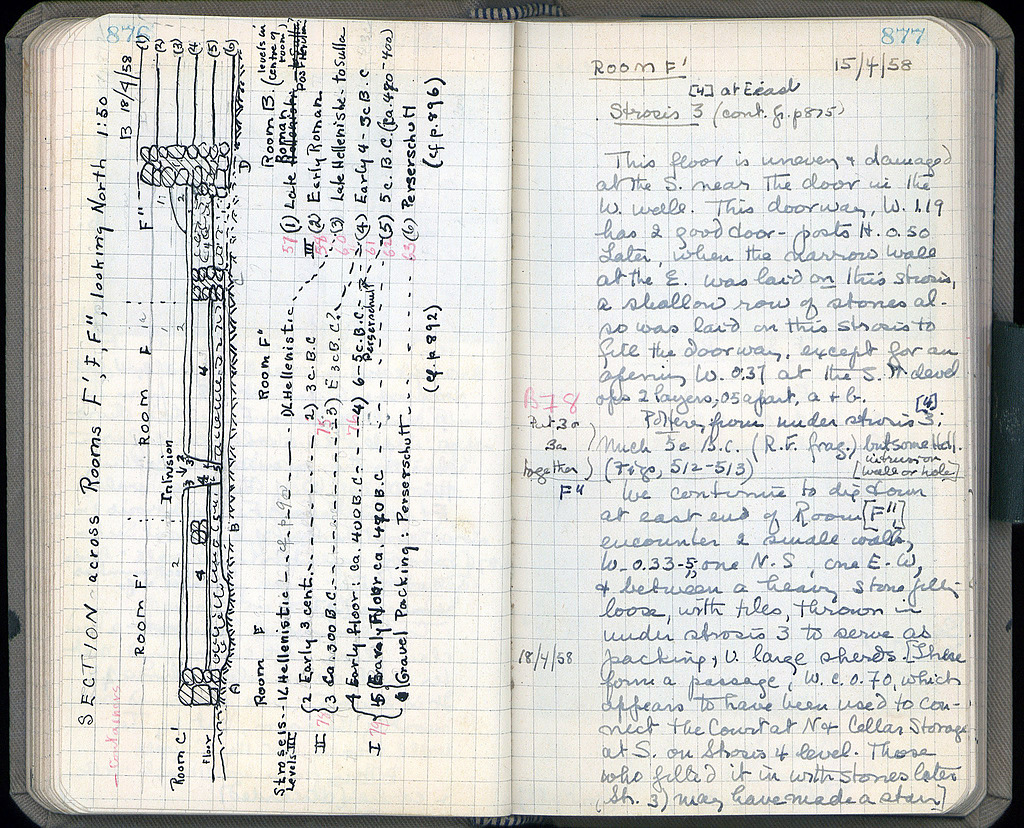 876
SECTION - across Rooms F', F, F", looking North 1:50
B 18/4/58
Room C'
Room F'
Room F
F"
Intrusion
Floor
(1)
(2)
(3)
(4)
(5)
(6)
A
B
C
D
Containers
Stroseis
Levels
Room F
1 L Hellenistic
2 Early 3 cent.
3 Ca. 300 B.C.
4 Early Floor: ca. 400 B.C.
5 Gravely Floor ca. 420 B.C
6 Gravel Packing: Perserschutt
III
II
I
Room F"
1) L Hellenistic
2) 3 c. B.C
3) E 3 c B.C?
4) 6-5 c. B.C.
Perserschutt
(cf. p. 892)
Room B. (levels in centre of room)
57 (1) Late Roman
(2) Early Roman
(3) Late Hellenistic - to Sulla
61 (4) Early 4 - 3 c B.C
62 (5) 5 c. B.C. (ca. 480-400)
63 (6) Perserschutt
(cf p. 896)
877
Room F' 15/4/58
[4] at E end
Strosis 3 (cont. fr. p 875)
This floor is uneven & damaged
at the S. near the door in the
W. wall. This doorway, W. 1.19
has 2 good door-posts H. 0.50
Later, when the narrow wall
at the E. was laid on this strosis,
a shallow row of stones al-
so was laid on this strosis to
fill the doorway, except for an
opening W. 0.37 at the S.
2 layers, 05 apart, a & b.
B78
Put 3 &
3a
together
Pottery from under strosis 3; [4]
Much 5c B.C. (R.F. frag.) but some Hell.
(Figs. 512-513) intrusion [wall or hole]
F"
We continue to dig down
at east end of Room [F"]
encounter 2 small walls,
W-0.33-5, one N.S, one E.W,
& between a heavy stone fill-
loose, with tiles, thrown in
under strosis 3 to serve as
18/4/58
packing, v. large sherds. [These
form a passage, W. c. 0.70, which
appears to have been used to con-
nect the Court at N & Cellar Storage
at S. on Strosis 4 level. Those
who filled it in with stones later
(Str. 3) may have made a stair]